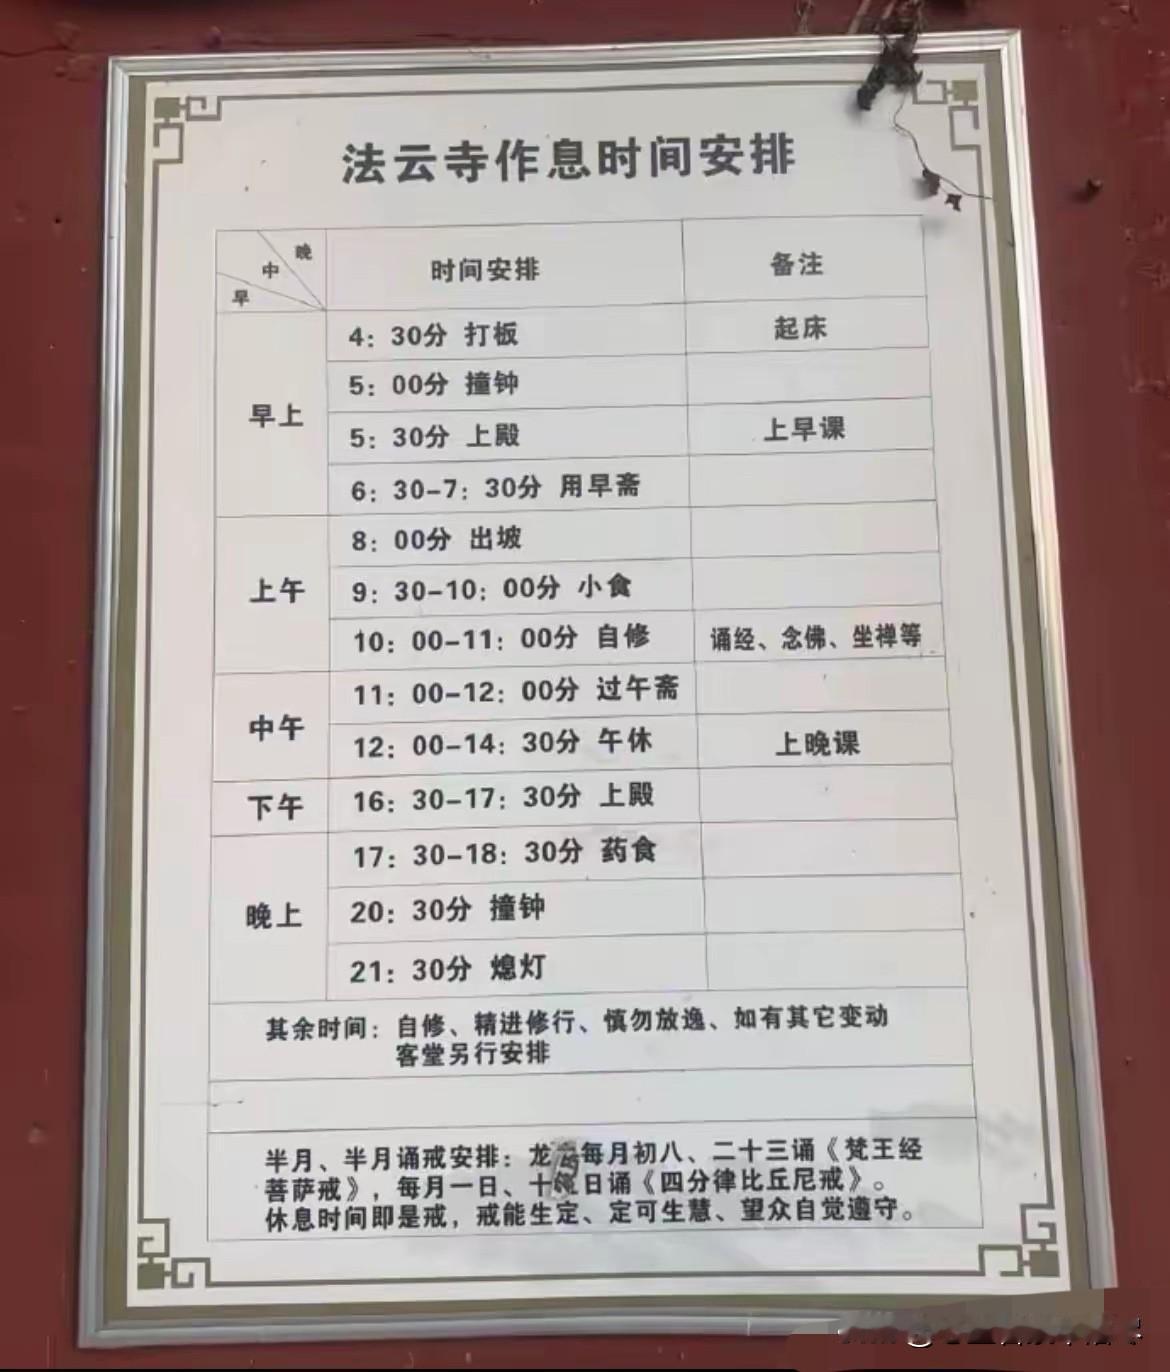 法云寺作息时间安排
晚
中
早
时间安排 备注
早上
4：30分 打板 起床
5：00分 撞钟
5：30分 上殿 上早课
6：30-7：30分 用早斋
上午
8：00分 出坡
9：30-10：00分 小食
10：00-11：00分 自修 诵经、念佛、坐禅等
中午
11：00-12：00分 过午斋
12：00-14：30分 午休 上晚课
下午
16：30-17：30分 上殿
晚上
17：30-18：30分 药食
20：30分 撞钟
21：30分 熄灯
其余时间：自修、精进修行、慎勿放逸、如有其它变动
客堂另行安排
半月、半月诵戒安排：龙每月初八、二十三诵《梵王经
菩萨戒》，每月一日、十日诵《四分律比丘尼戒》。
休息时间即是戒，戒能生定、定可生慧、望众自觉遵守。